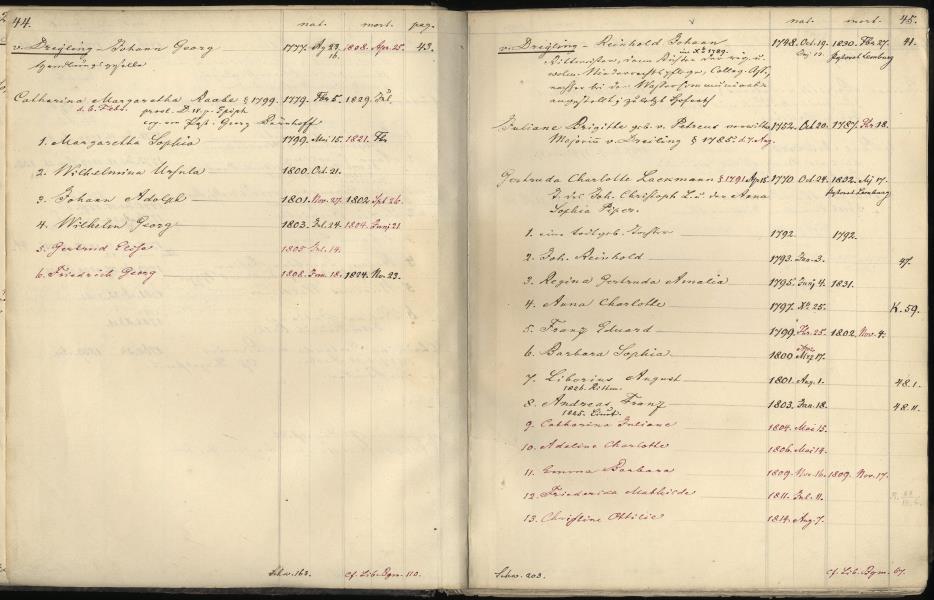 44. nat. mort. pag.
v. Dreyling Johann Georg 1777. Ag. 23. 1808. Apr. 25. 43.
16.
Handlungsgeselle
Catharina Margaretha Raabe § 1799. 1779. Fbr 5. 1829. Jul.
d. 6. Febr. procl. D. IV. p. Epiph.
cop. von Past. Georg
1. Margaretha Sophia 1799. Mai 15. 1821. Fbr
2. Wilhelmina Ursula 1800. Oct. 21.
3. Johann Adolph 1801. Nov. 27. 1802. Spt 26.
4. Wilhelm Georg 1803. Jul. 24. 1804. Junj 21
5. Gertrud Elise 1805. Jul. 14.
6. Friedrich Georg 1808. Jan. 18. 1824. Nov. 23.
Schw. 163. cf. Lib. Bgm. 110.
nat. mort. 45.
v. Dreyling Reinhold Johann 1748. Oct. 19. 1830. Fbr 27. 41.
Rittmeister, dann
Juliane Brigitte geb. v. Petreus verwitw. 1752. Oct. 20. 1787. Fbr. 18.
Majorin v. Dreiling § 1785. d. 7. Aug.
Gertruda Charlotte Laekmann § 1791 Apr. 15 1770 Oct. 24. 1832. Mj 17.
T. des Joh. Christoph L. u. der Anna
Sophia Piper.
1. eine todtgeb. Tochter 1792. 1792.
2. Joh. Reinhold 1793. Jan. 3. 47.
3. Regina Gertruda Amalia 1795. Junj 4. 1831.
4. Anna Charlotte 1797. Xbr 25. K. 59.
5. Franz Eduard 1799. Fbr. 25. 1802. Nov. 4.
6. Barbara Sophia 1800 17.
7. Liborius August 1801. Aug. 1. 48. I.
1826. Rittm.
8. Andreas Franz 1803. Jan. 18. 48. II.
1825. Lieut.
9. Catharina Juliane 1804. Mai 15.
10. Adeline Charlotte 1806. Mai 14.
11. Emma Barbara 1809. Nov. 16. 1809. Nov. 17.
12. Friederica Mathilde 1811. Jul. 11.
13. Christine Ottilie 1814. Aug. 7.
Schw. 203. cf. Lib. Bgm. 67.